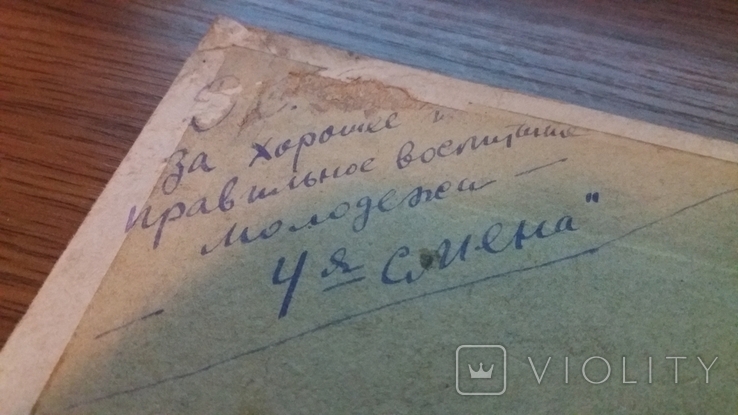 За хорошее и
правильное воспитание
молодежи —
4я смена"
VIOLITY